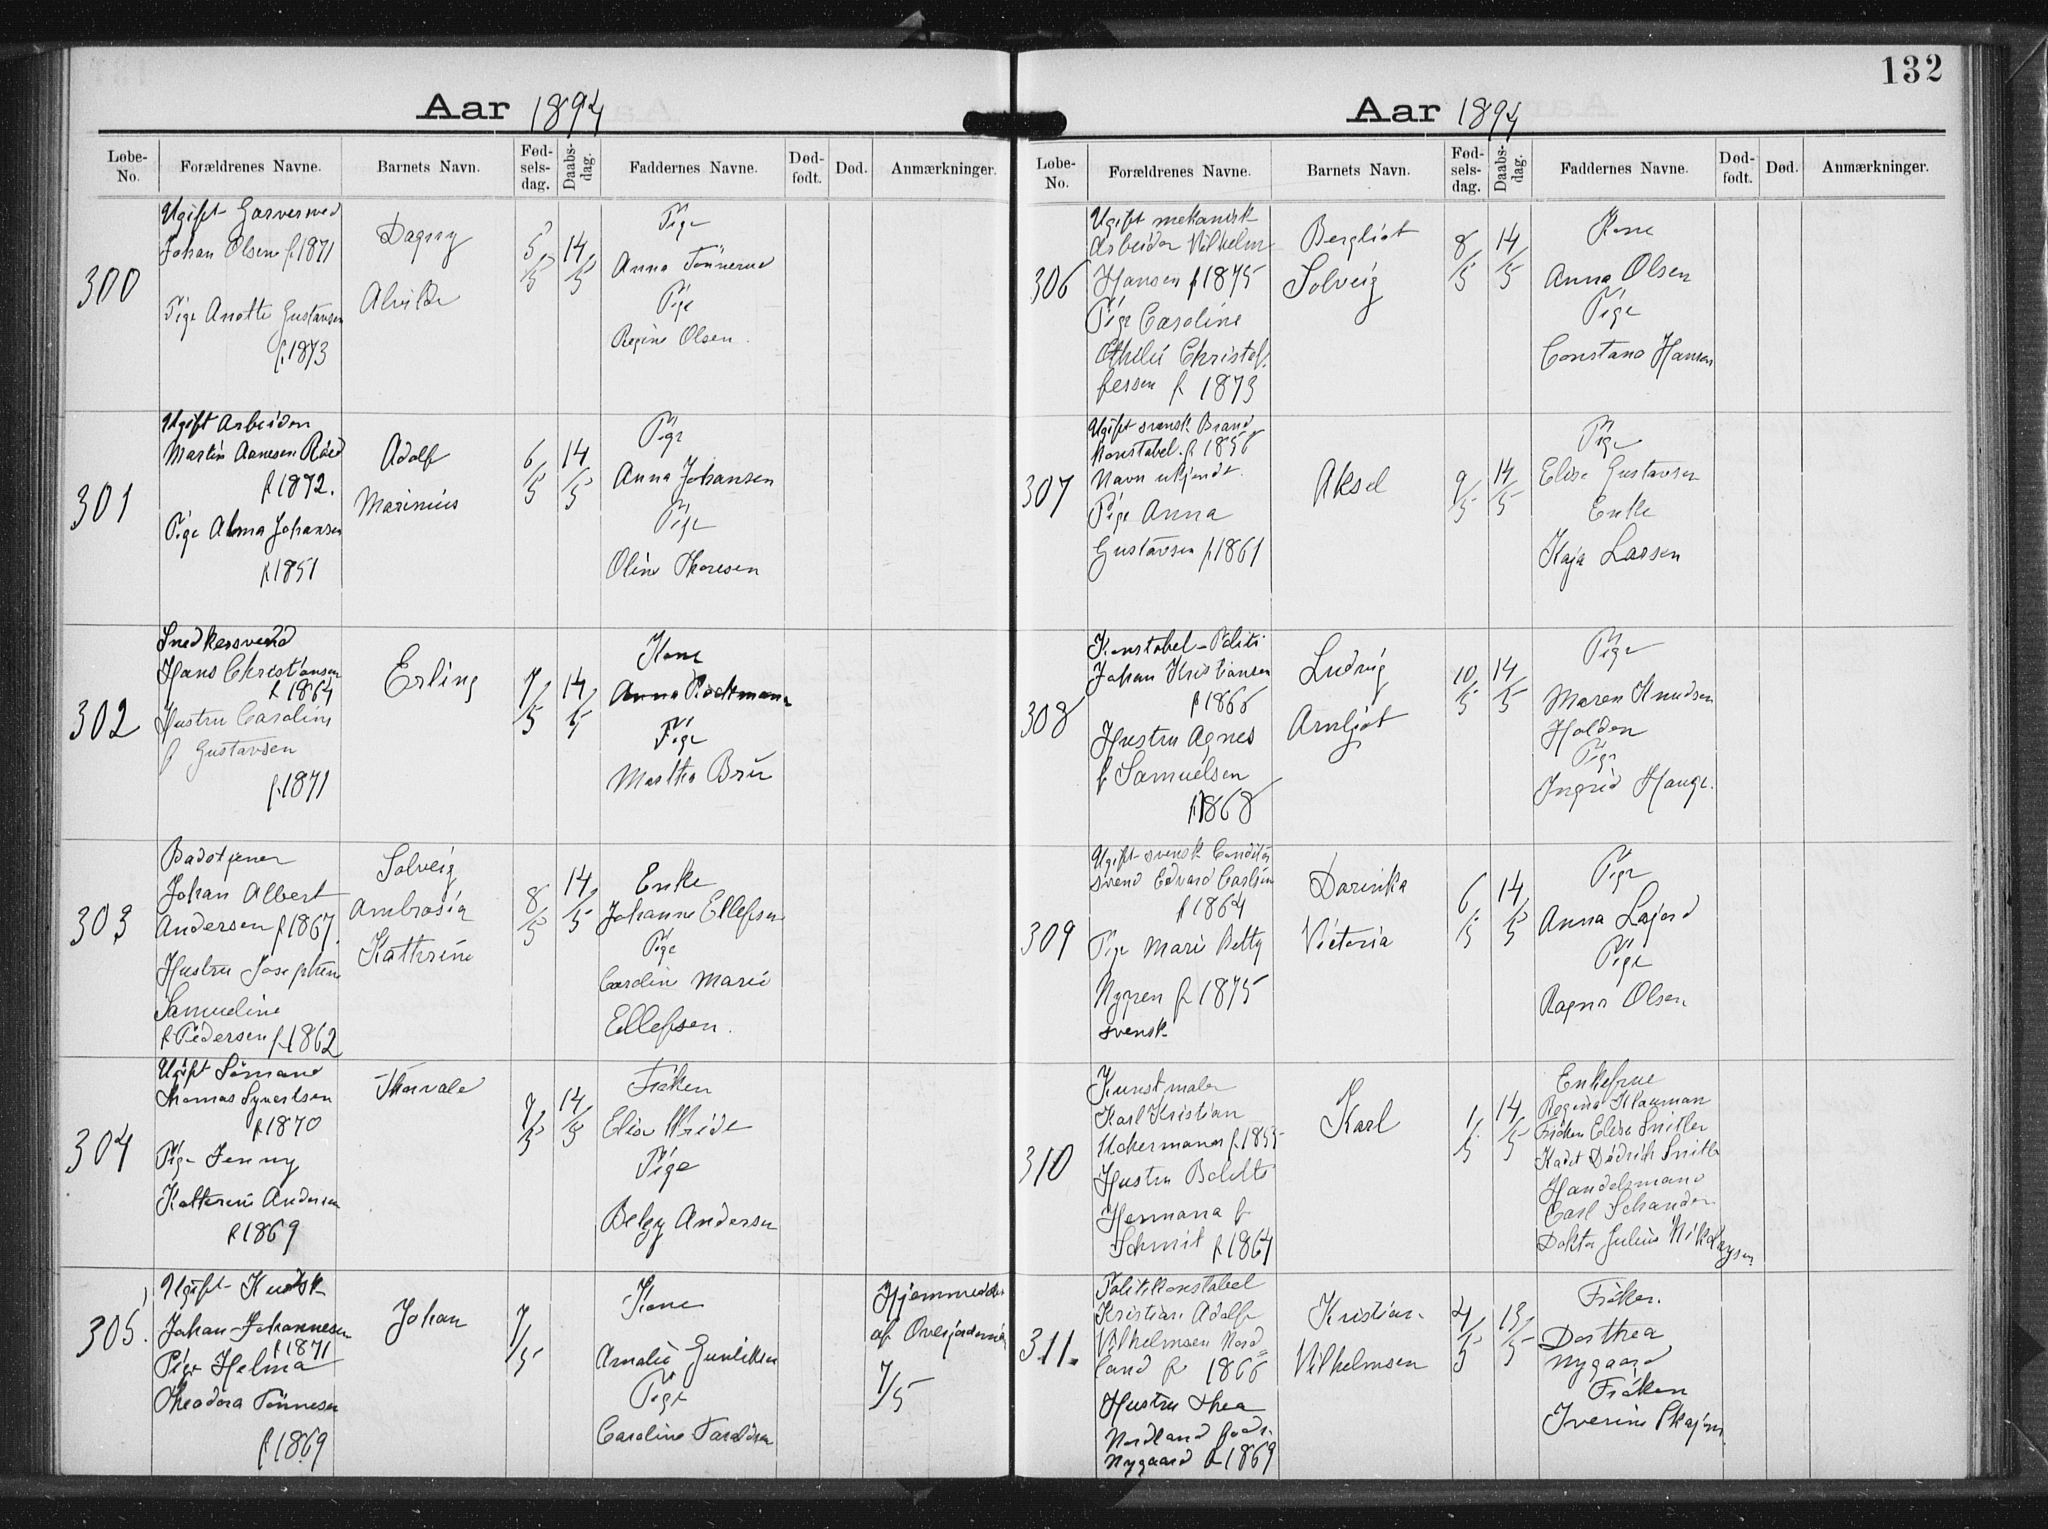 Aar 1894
Løbe-No. Forældrenes Navne. Barnets Navn. Fød-sels-dag. Daabs-dag. Faddernes Navne. Død-født. Død. Anmærkninger.
300
Ugift Garversvend
Johan Olsen f. 1871
Pige Anette Gustavsen
f. 1873
Dagny
Alvilde
5/5
14/5
Pige
Anna Tønnerud
Pige
Regine Olsen.
301
Ugift Arbeider
Martin Arnesen Røed
f. 1872.
Pige Alma Johansen
f. 1851
Adolf
Marinius
6/5
14/5
Pige
Anna Johansen
Pige
Oline Thoresen
302
Snedkersvend
Hans Christiansen
f. 1864
Hustru Caroline
f Gustavsen
f. 1871
Erling
7/5
14/5
Kone
Anna
Pige
Martha Brü
303
Badetjener
Johan Albert
Andersen f. 1867.
Hustru Josephine
Samueline
f. Pedersen f. 1862
Solveig
Ambrosia
Kathrine
8/5
14/5
Enke
Johanne Ellefsen
Pige
Carolin Marie
Ellefsen.
304
Ugift Sømand
Thomas Syvertsen
f. 1870
Pige Jenny
Kathrine Andersen
f. 1869
Thorvald
7/5
14/5
Frøken
Elise
Pige
Andersen
305.
Ugift Kudsk
Johan Johannesen
f. 1871
Pige Helma
Theodora Tønnesen
f. 1869
Johan
7/5
Kone
Amalie Gunliksen
Pige
Caroline
Hjemmedøbt
af Overjordemor
7/5
132
Aar 1894
Løbe-No. Forældrenes Navne. Barnets Navn. Fød-sels-dag. Daabs-dag. Faddernes Navne. Død-født. Død. Anmærkninger.
306
Ugift mekanisk
Arbeider Vilhelm
Hansen f. 1875
Pige Caroline
Othilie Christof-
fersen f. 1873
Bergliot
Solveig
8/5
14/5
Kone
Anna Olsen
Pige
Constans Hansen
307
Ugift svensk Brand
konstabel. f. 1856
Navn ukjendt.
Pige Anna
Gustavsen f. 1861
Aksel
9/5
14/5
Pige
Elise Gustavsen
Enke
Kaja Larsen
308
Konstabel - Politi
Johan Kristiansen
f. 1866
Hustru Agnes
f Samuelsen
f. 1868
Ludvig
Arnljot
10/5
14/5
Pige
Maren Knudsen
Holden
Pige
Ingrid Hauge.
309
Ugift svensk Conditor
svend Edvard Carlsen
f. 1864
Pige Marie Betty
Nyren f. 1875
svensk
Darinka
Victoria
6/5
14/5
Pige
Anna Lajord
Pige
Ragna Olsen
310
Kunstmaler
Karl Kristian
Uchermann f. 1855
Hustru Bolette
Hermana f
Schmit f. 1864
Karl
1/5
14/5
Enkefrue
Regina Klauman
Frøken Elise Snitler
Kadet Didrich Snitler
Handelsmand
Carl Schander
Doktor Julius Nikolaysen
311.
Politikonstabel
Kristian Adolf
Vilhelmsen Nord=
land f. 1866
Hustru Thea
Nordland født
Nygaard f. 1869
Kristian
Vilhelmsen
4/5
13/5
Frøken.
Dorthea
Nygaard
Frøken
Iverine